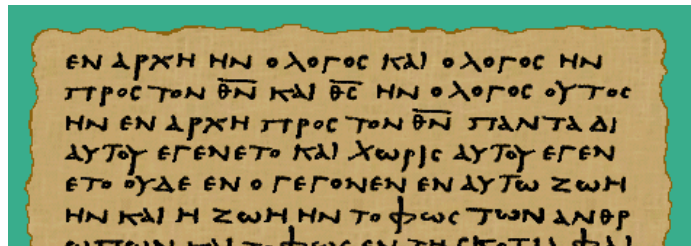 ΕΝ ΑΡΧΗ ΗΝ Ο ΛΟΓΟϹ ΚΑΙ Ο ΛΟΓΟϹ ΗΝ
ΠΡΟϹ ΤΟΝ Θ̅Ν̅ ΚΑΙ Θ̅Ϲ̅ ΗΝ Ο ΛΟΓΟϹ ΟΥΤΟϹ
ΗΝ ΕΝ ΑΡΧΗ ΠΡΟϹ ΤΟΝ Θ̅Ν̅ ΠΑΝΤΑ ΔΙ
ΑΥΤΟΥ ΕΓΕΝΕΤΟ ΚΑΙ ΧΩΡΙϹ ΑΥΤΟΥ ΕΓΕΝ
ΕΤΟ ΟΥΔΕ ΕΝ Ο ΓΕΓΟΝΕΝ ΕΝ ΑΥΤΩ ΖΩΗ
ΗΝ ΚΑΙ Η ΖΩΗ ΗΝ ΤΟ ΦΩϹ ΤΩΝ ΑΝΘΡ
ΩΠΩΝ ΚΑΙ ΤΟ ΦΩϹ ΕΝ ΤΗ ϹΚΟΤΙΑ ΦΑΙ